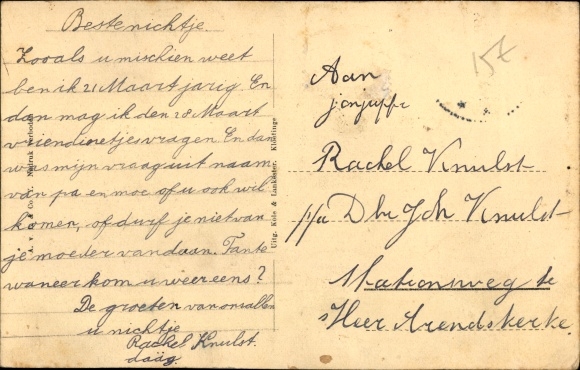 Beste nichtje.
Zooals u mischien weet
ben ik 21 Maart jarig. En
dan mag ik den 28 Maart
vriendinetjes vragen. En dan
was mijn vraag uit naam
van pa en moe of u ook wil
komen, of durf je niet van
je moeder vandaan. Tante
waneer kom u weer eens?
De groeten van ons allen
u nichtje
Rachel Knulst.
daag.
Nadruk verboden
Uitg. Kole & Lankester, Kloetinge
157
Aan
Rachel Knulst
p/a Dhr Joh Knulst
Stationsweg te
's Heer Arendskerke.